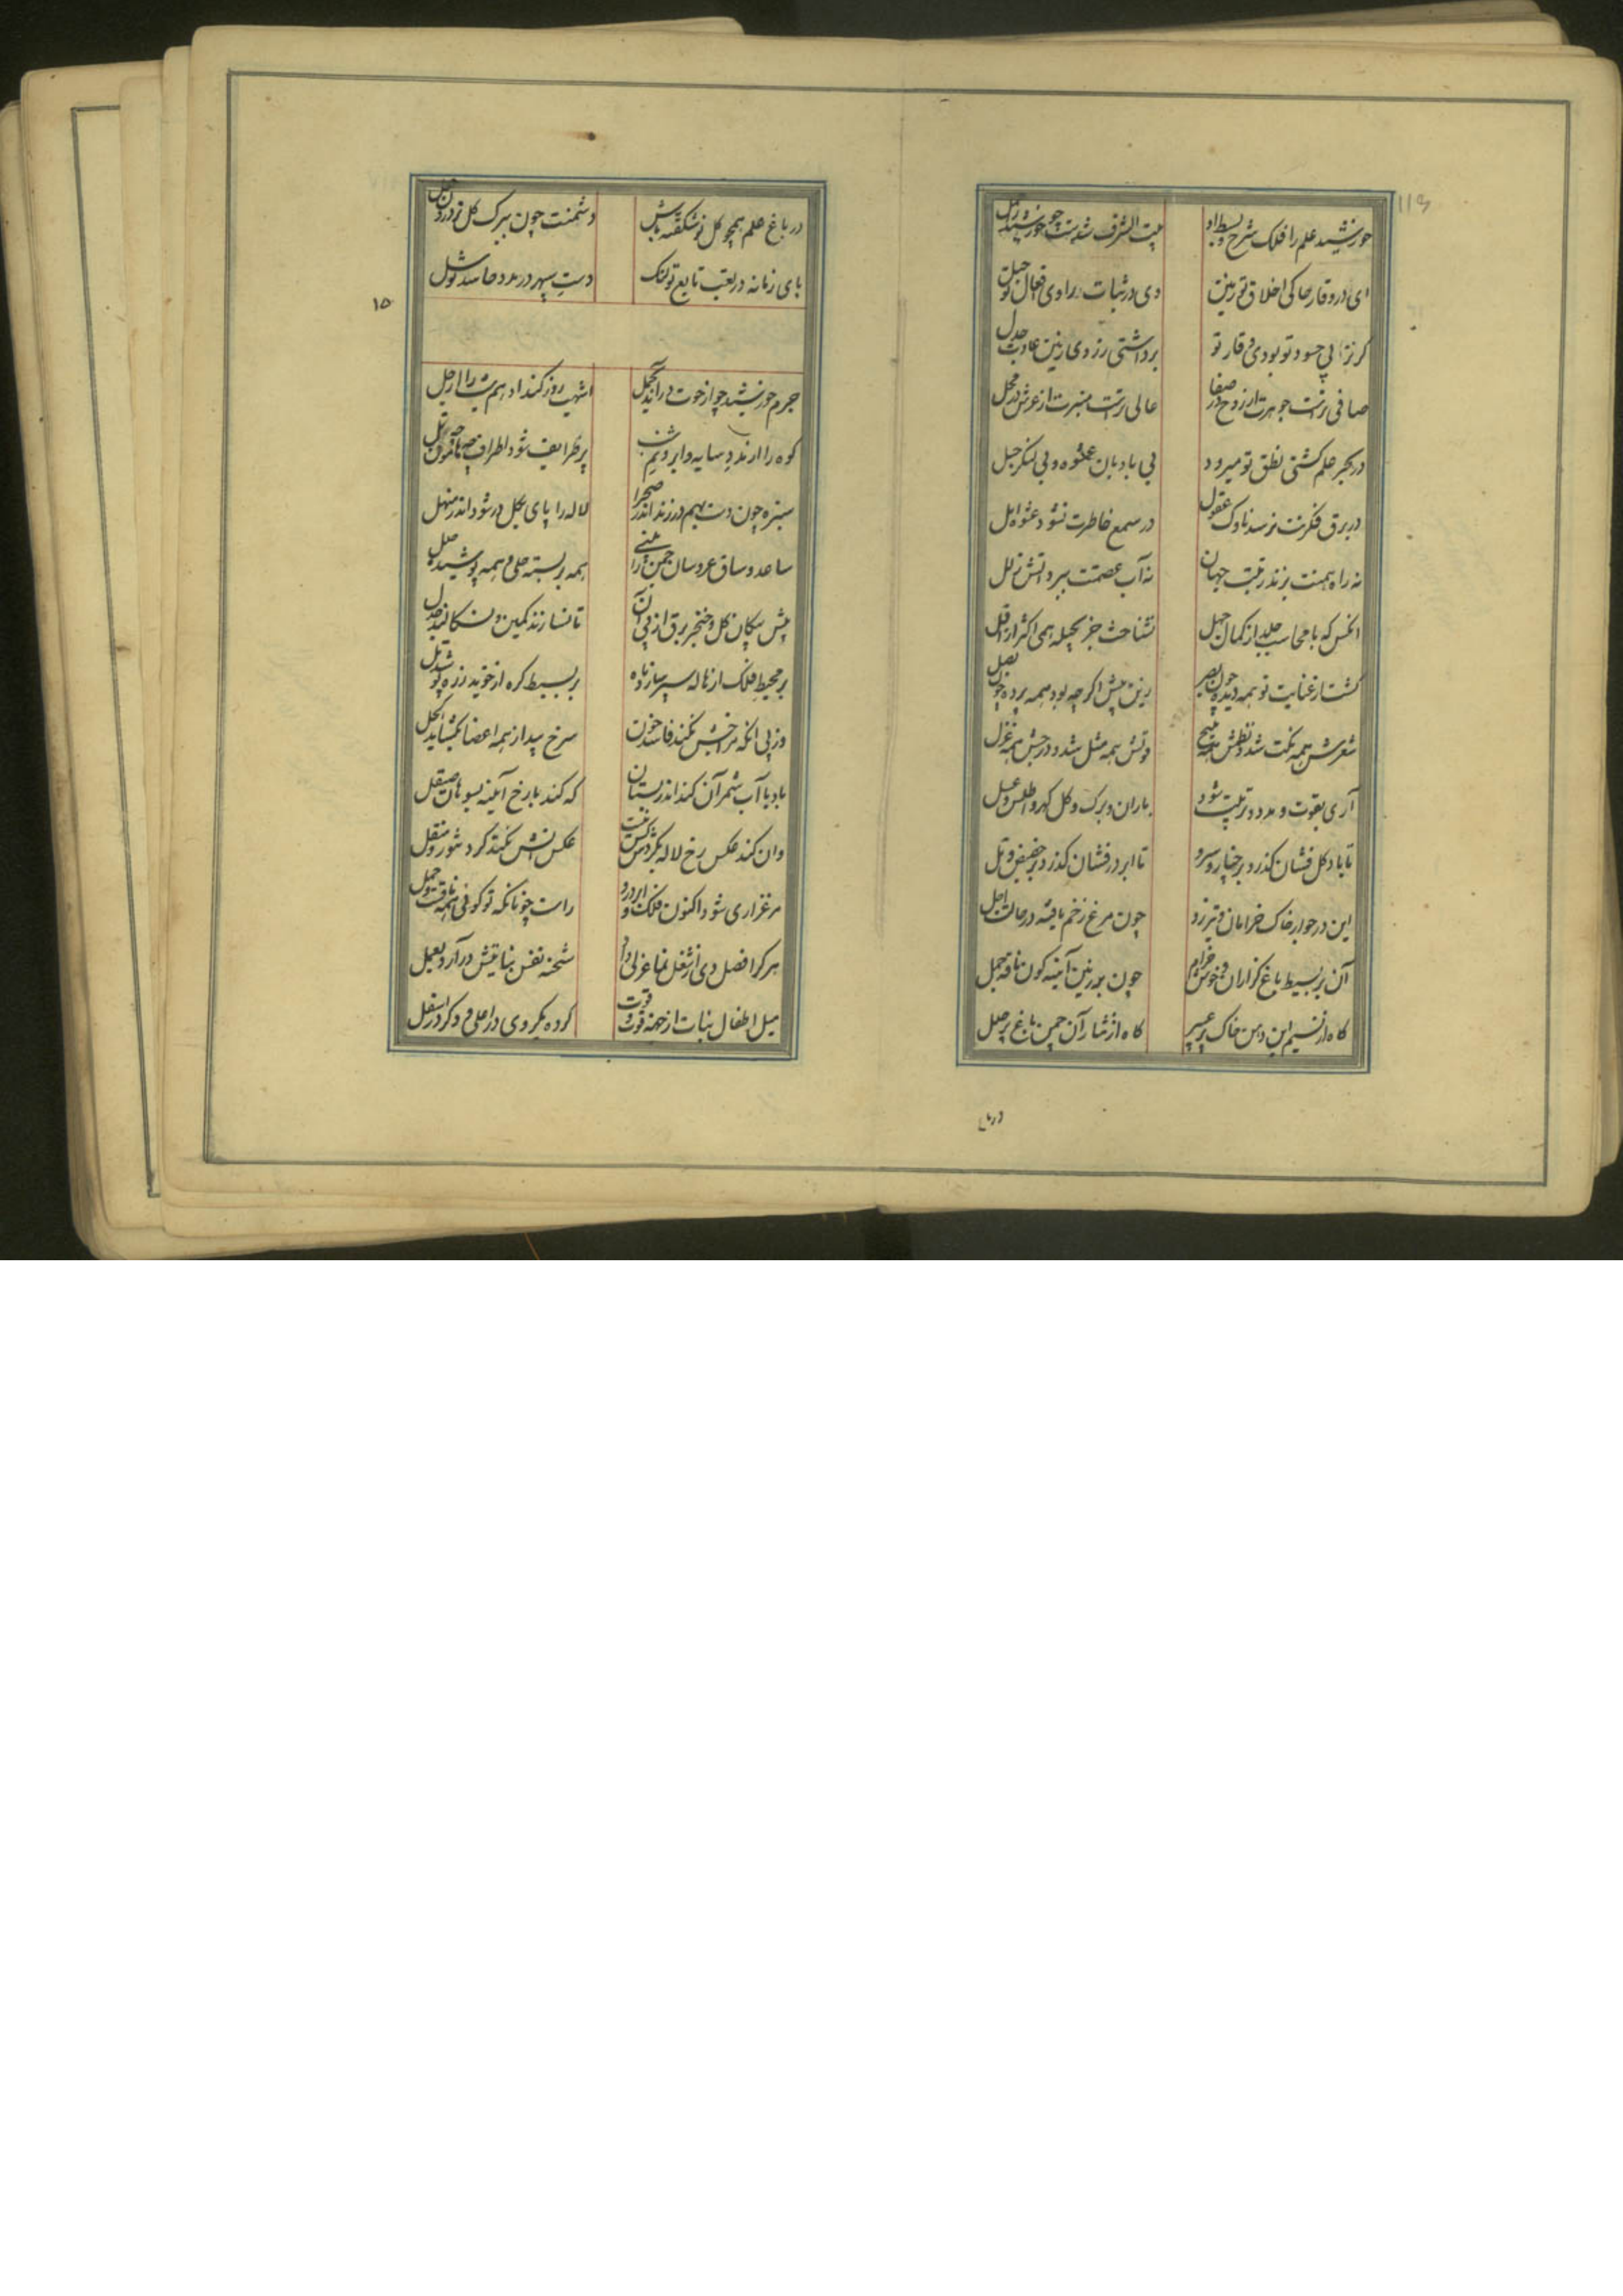 ۱۱۹
خورشید علم را فلک شرح و بسط داد بیت الشرف شدست چو خورشید را حمل
ای در وقار حاکی اخلاق تو زمین وی در ثبات راوی افعال تو جبل
گر نز پی حسود تو بودی وقار تو برداشتی ز روی زمین عادت جدل
صافی ترست جوهرت از روح در صفا عالی ترست منبرت از عرش در محل
در بحر علم کشتی نطق تو میرود بی بادبان عشوه و بی لنگر حیل
در برق فکرتت نرسد ناوک عقول در سمع خاطرت نشود عشوه امل
نه راه همتت بزند رتبت جهان نه آب عصمتت ببرد آتش زلل
آنکس که با محاسب جلد از کمال جهل نشناخت جز بحیله همی اکثر از اقل
گشت از عنایت تو همه دیده چون بصر زین پیش اگر چه بود همه پرده چون بصل
شعرش همه نکت شد و نظمش همه ملیح قولش همه مثل شد و درجش همه غزل
آری بقوت و مدد و تربیت شود باران و برگ و گل گهر و اطلس و عسل
تا باد گل فشان گذرد بر چنار و سرو تا ابر در فشان گذرد بر حضیض و تل
این در جوار خاک خرامان و تیز رو چون مرغ زخم یافته در حالت اجل
آن بر بسیط باغ گرازان و خوش خرام چون بر زمین آینه گون ناقه و جمل
گاه از نسیم این دهن خاک پر عبیر گاه از نثار آن چمن باغ پر حلل
در باغ
در باغ علم همچو گل نو شکفته باش دشمنت چون ببرگ گل نو درون جعل
پای زمانه در تعب تابع تو لنگ دست سپهر در مدد حاسد تو شل
۱۵
جرم خورشید چو از حوت درآید بحمل اشهب روز کند ادهم شب را ارجل
کوه را از مدد سایه ابر و نم شب پر طرایف شود اطراف چه هامون و چه تل
سبزه چون دست بهم درزند اندر صحرا لاله را پای بگل درشود اندر منهل
ساعد و ساق عروسان چمن را بینی همه بر بسته حلی و همه پوشیده حلل
پیش پیکان گل و خنجر برق از پی آن تا نسازند کمین و نسگالند جدل
بر محیط فلک از هاله سپر سازد ماه بر بسیط کره از خوید زره پوشد تل
وز پی آنکه مزاجش نکند فاسد خون سرخ بید از همه اعضا بگشاید اکحل
باد با آب شمر آن کند اندر بستان که کند با رخ آیینه بسوهان صیقل
وان کند عکس رخ لاله بگردش که بشب عکس آتش نکند گرد تنور و منقل
مرغزاری شود اکنون فلک و ابر درو راست چونانکه تو گوئی همه ناقست و جمل
هر کرا فصل دی از شغل نما عزلی داد شحنه نفس نباتیش درآرد بعمل
میل اطفال نبات از جهت قوت و قوت کرده یکروی در اعلی و دگر در اسفل